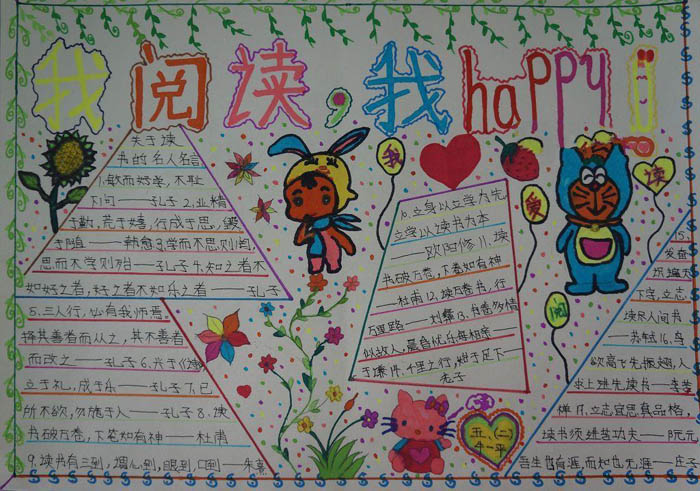 我阅读，我happy！
关于读
书的名人名言
1.敏而好学，不耻
下问——孔子 2.业精
于勤，荒于嬉，行成于思，毁
于随——韩愈 3.学而不思则罔，
思而不学则殆——孔子 4.知之者不
如好之者，好之者不如乐之者——孔子
5.三人行，必有我师焉，
择其善者而从之，其不善者
而改之——孔子 6.兴于《诗》
立于礼，成于乐——孔子 7.己
所不欲，勿施于人——孔子 8.读
书破万卷，下笔如有神——杜甫
9.读书有三到，谓心到，眼到，口到——朱熹
我
爱
阅
读
10.立身以立学为先，
立学以读书为本
——欧阳修 11.读
书破万卷，下卷如有神
——杜甫 12.读万卷书，行
万里路——刘彝 13.书卷多情
似故人，晨昏忧乐每相亲——
于谦 14.千里之行，始于足下——
老子
15.
发奋
识遍天
下字，立志
读尽人间书
——苏轼 16.鸟
欲高飞先振翅，人
求上进先读书——李苦
禅 17.立志宜思真品格，
读书须进苦功夫——阮元
吾生也有涯，而知也无涯——庄子
五、(二)